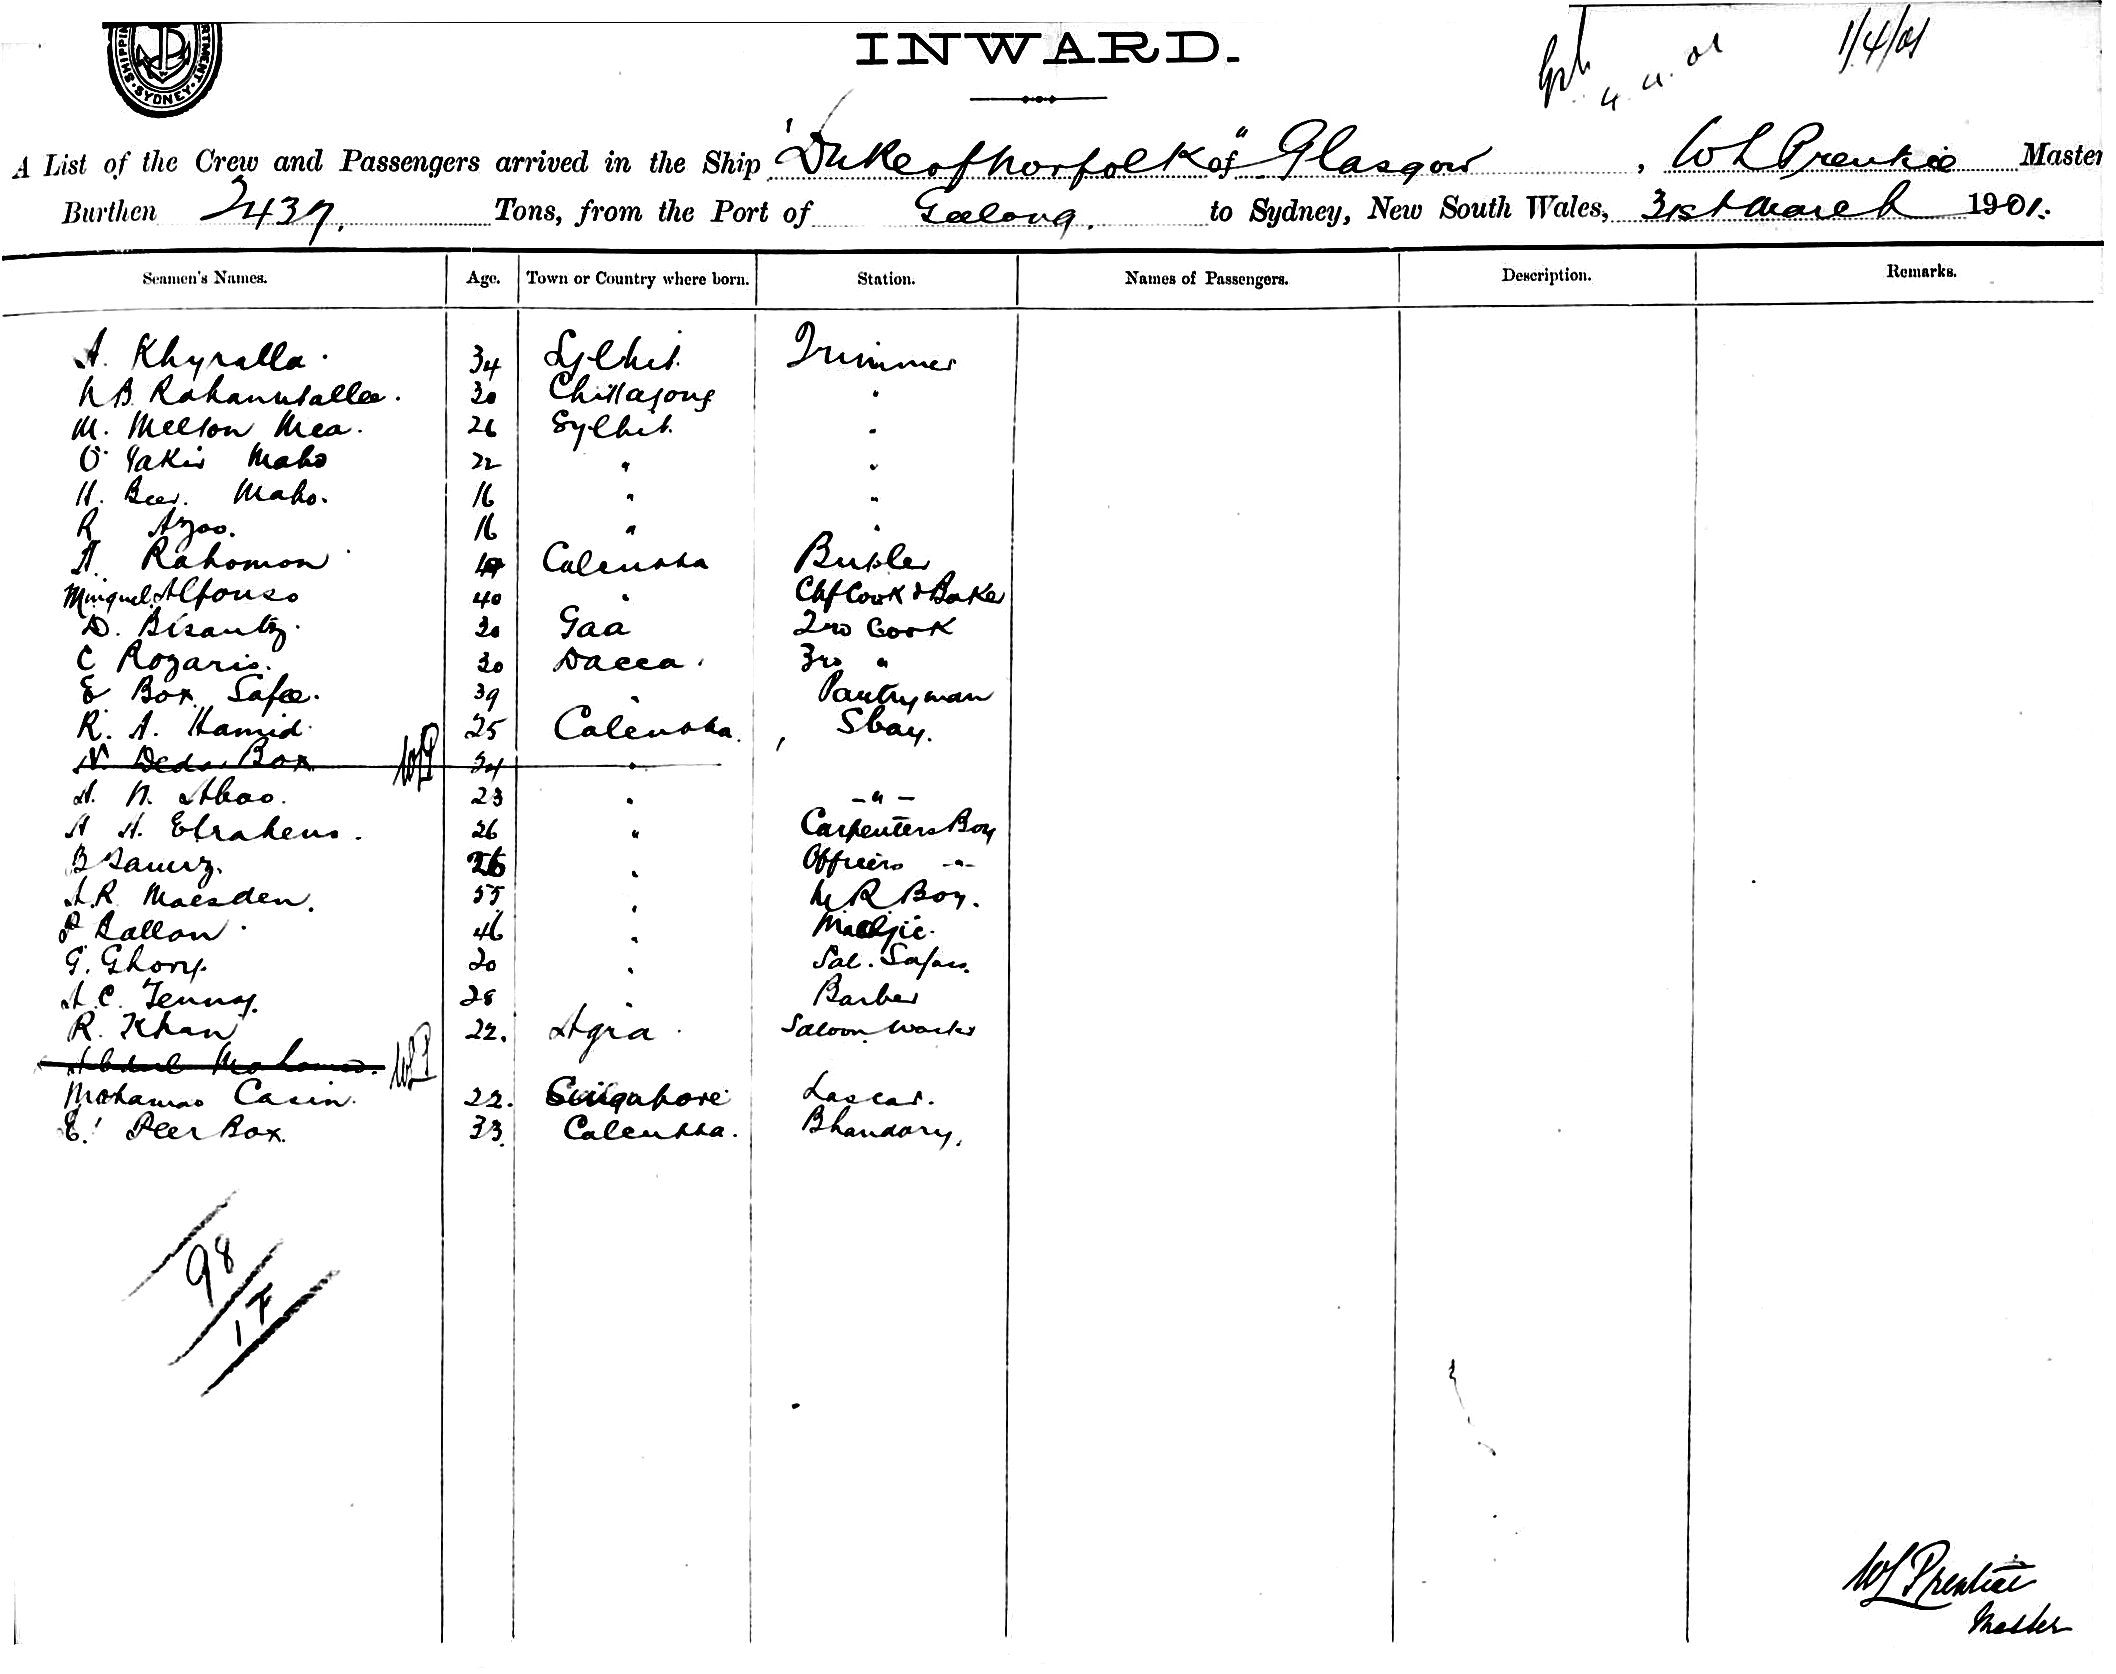 SHIPPING DEPARTMENT SYDNEY
INWARD.
1/4/01
A List of the Crew and Passengers arrived in the Ship "Duke of Norfolk" of Glasgow, W L Prentice Master
Burthen 2437. Tons, from the Port of Geelong. to Sydney, New South Wales, 31st March 1901.
Seamen's Names. Age. Town or Country where born. Station. Names of Passengers. Description. Remarks.
A. Khyralla. 34 Sylhit. Trimmer
30 Chittagong "
M. Meeson Mea. 26 Sylhit. "
O Yakir Maho 22 " "
H. Beer. Maho. 16 " "
R Azoo. 16 " "
A. Rahomon 47 Calcutta Butler
Minguel Alfonso 40 " Chf Cook & Baker
D. Bisantz. 30 Gaa 2nd Cook
C Rozario. 30 Dacca. 3rd "
E Box Safee. 39 " Pantryman
R. A. Hamid. 25 Calcutta. Sboy.
N. Deda Box WLP 34 "
A. N. Aboo. 23 " - " -
A A. Ebrahems. 26 " Carpenters Boy
B 26 " Officers - " -
A.R. Maesden. 55 " M R Boy.
P Rallon. 46 "
G. Ghory. 20 " Sal.
A.C. Tennoy. 28 " Barber
R. Khan 22. Agra. Saloon
Abdul Mohomed. WLP
Mohamad Casin. 22. Singapore Lascar.
E. Peer Box. 33. Calcutta. Bhandary.
98
17
WL Prentice
Master